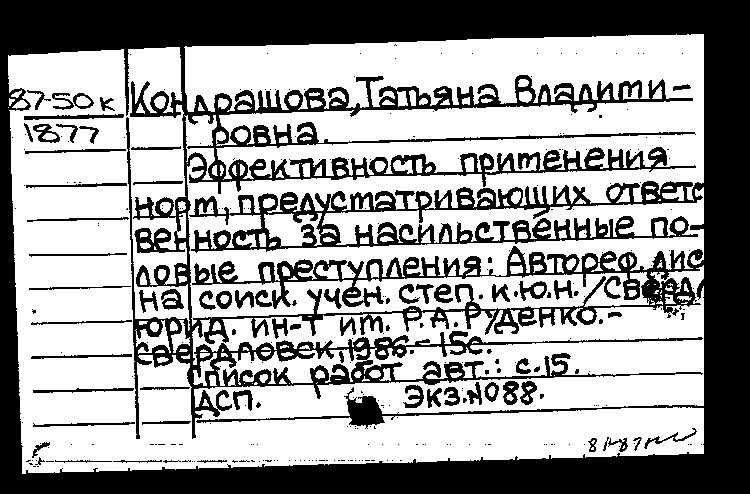 87-50к Кондрашова, Татьяна Владими-
1877 ровна.
Эффективность применения
норм, предусматривающих ответс
венность за насильственные по-
ловые преступления: Автореф. дис
на соиск. учен. степ. к.ю.н. / Сверд
юрид. ин-т им. Р.А.Руденко.-
Свердловск, 1986.- 15с.
Список работ авт.: с.15.
ДСП. Экз.№088.